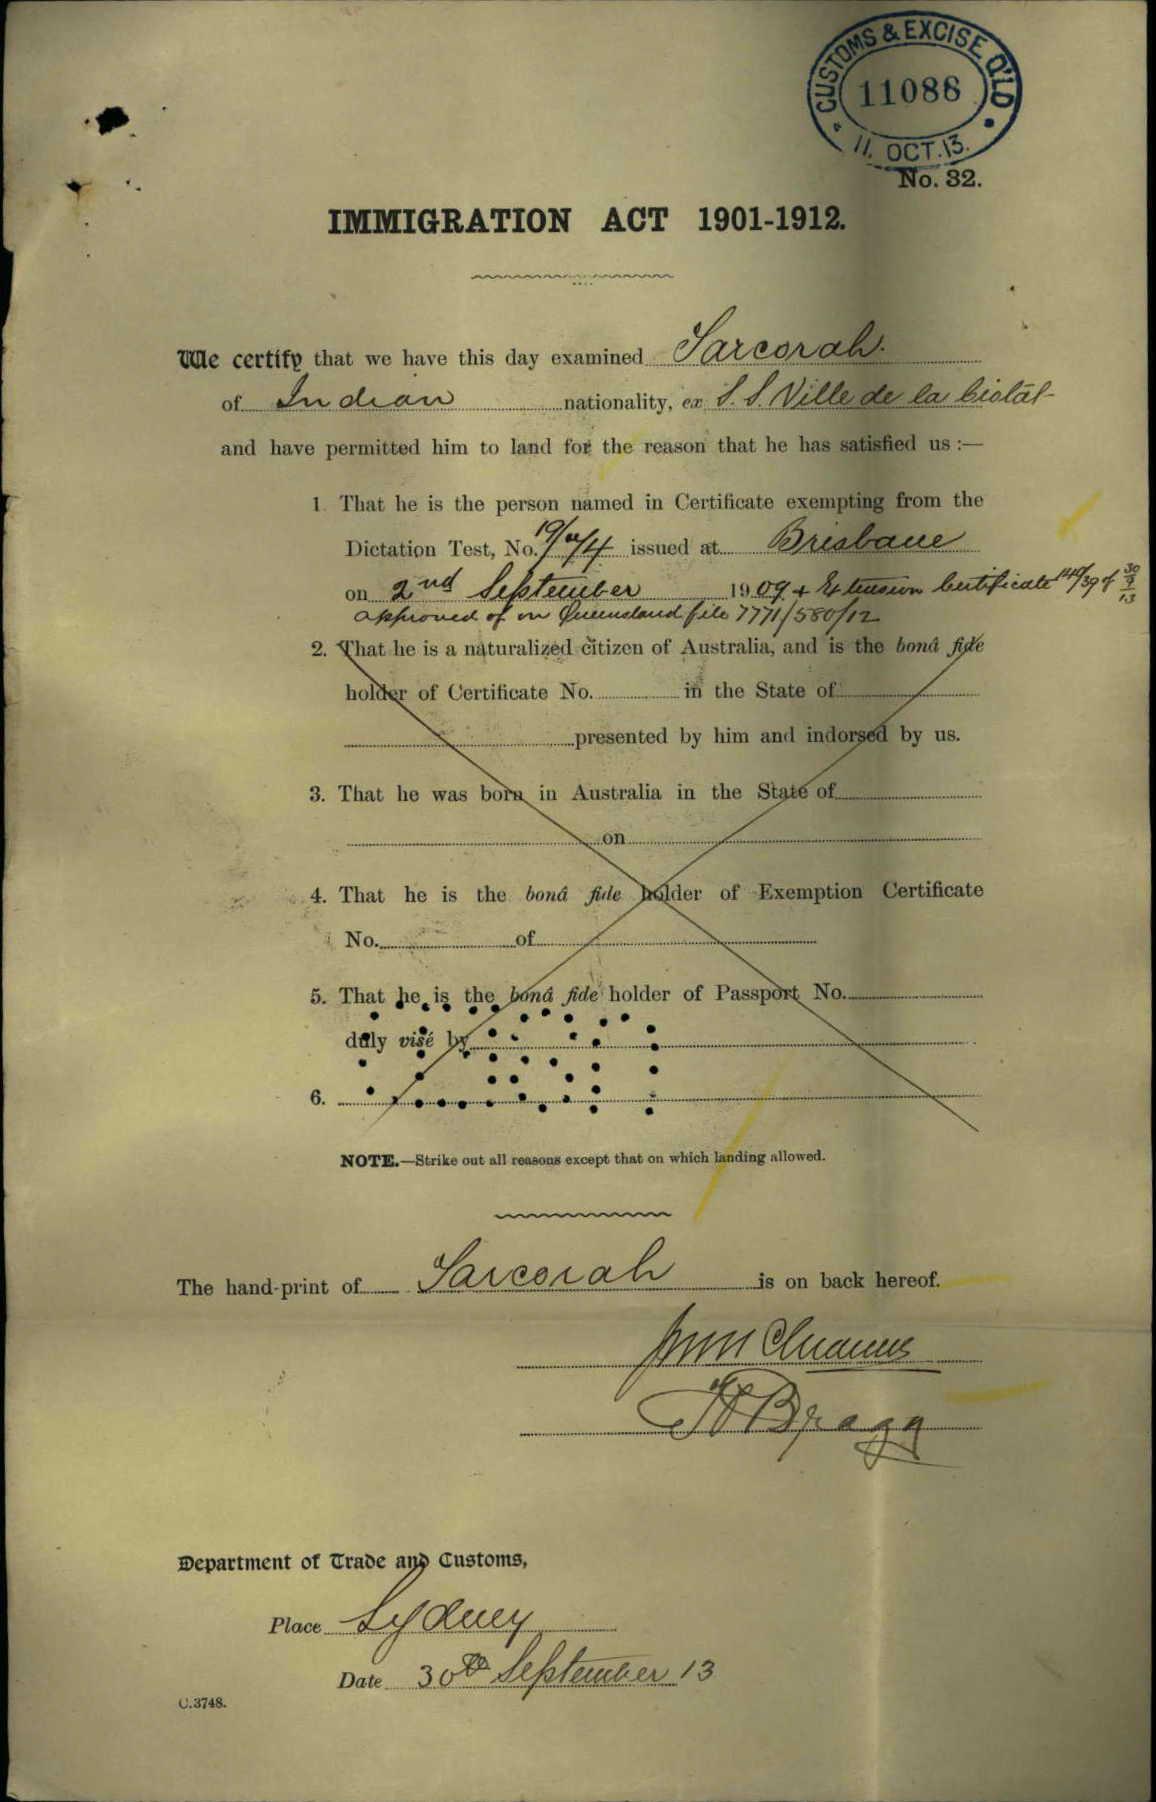 CUSTOMS & EXCISE Q'LD
11088
11. OCT. 13.
No. 32.
IMMIGRATION ACT 1901-1912.
We certify that we have this day examined Sarcorah.
of Indian nationality, ex S.S. Ville de la Ciotat
and have permitted him to land for the reason that he has satisfied us :—
1. That he is the person named in Certificate exempting from the
Dictation Test, No. issued at Brisbane
on 2nd September 1909 + Extension Certificate
approved of on Queensland file 7771/580/12
2. That he is a naturalized citizen of Australia, and is the bonâ fide
holder of Certificate No. in the State of
presented by him and indorsed by us.
3. That he was born in Australia in the State of
on
4. That he is the bonâ fide holder of Exemption Certificate
No. of
5. That he is the bonâ fide holder of Passport No.
duly visé by
6.
NOTE.—Strike out all reasons except that on which landing allowed.
The hand-print of Sarcorah is on back hereof.
Bragg
Department of Trade and Customs,
Place Sydney
Date 30th September 13
C.3748.